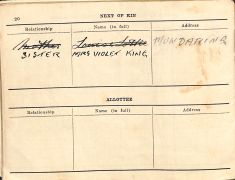 20
NEXT OF KIN
Relationship Name (in full) Address
Mother
SISTER MRS VIOLET KING MUNDARING
ALLOTTEE
Relationship Name (in full) Address